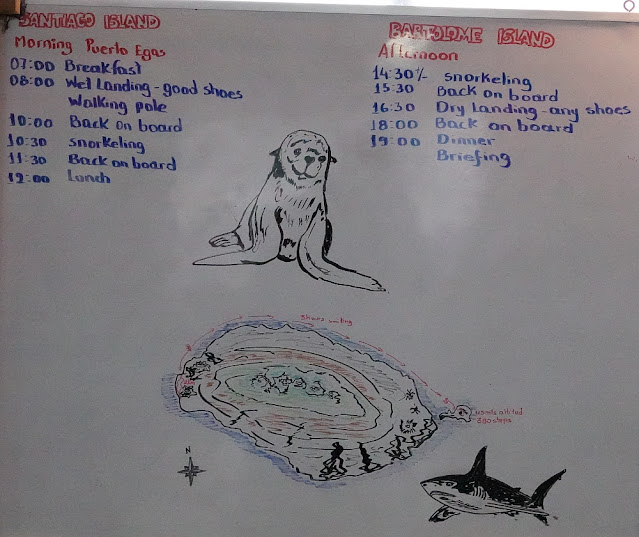 SANTIAGO ISLAND
Morning Puerto Egas
07:00 Breakfast
08:00 Wet Landing - good shoes
Walking pole
10:00 Back on board
10:30 snorkeling
11:30 Back on board
12:00 Lunch
BARTOLOME ISLAND
Afternoon
14:30 /- snorkeling
15:30 Back on board
16:30 Dry Landing - any shoes
18:00 Back on board
19:00 Dinner
Briefing
N